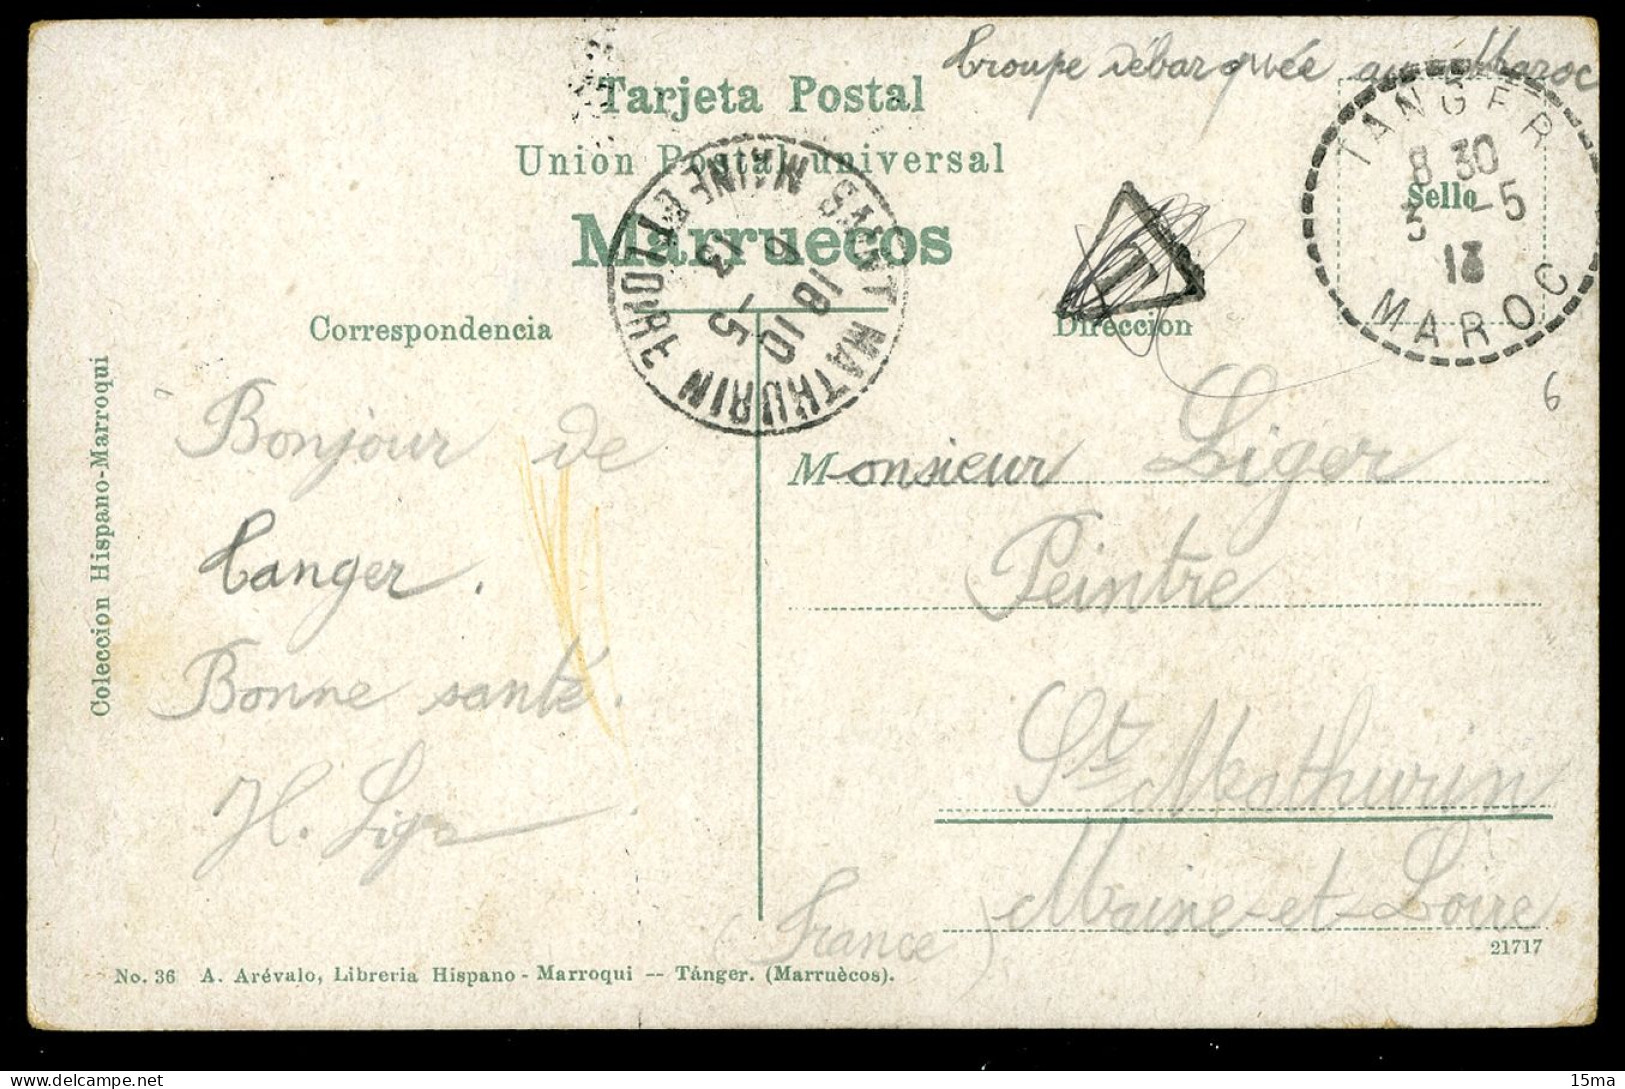 Troupe débarquée au Maroc
Tarjeta Postal
Union Postal universal
Marruecos
TANGER
8 30
3 - 5
13
MAROC
Sello
T
SAINT MATHURIN
MAINE ET LOIRE
18 10
- 5
13
Correspondencia
Direccion
6
Coleccion Hispano-Marroqui
Bonjour de
Tanger.
Bonne santé.
H. Liger
Monsieur Liger
Peintre
St. Mathurin
Maine-et-Loire
(France)
21717
No. 36 A. Arévalo, Libreria Hispano - Marroqui -- Tánger. (Marruècos).
15ma